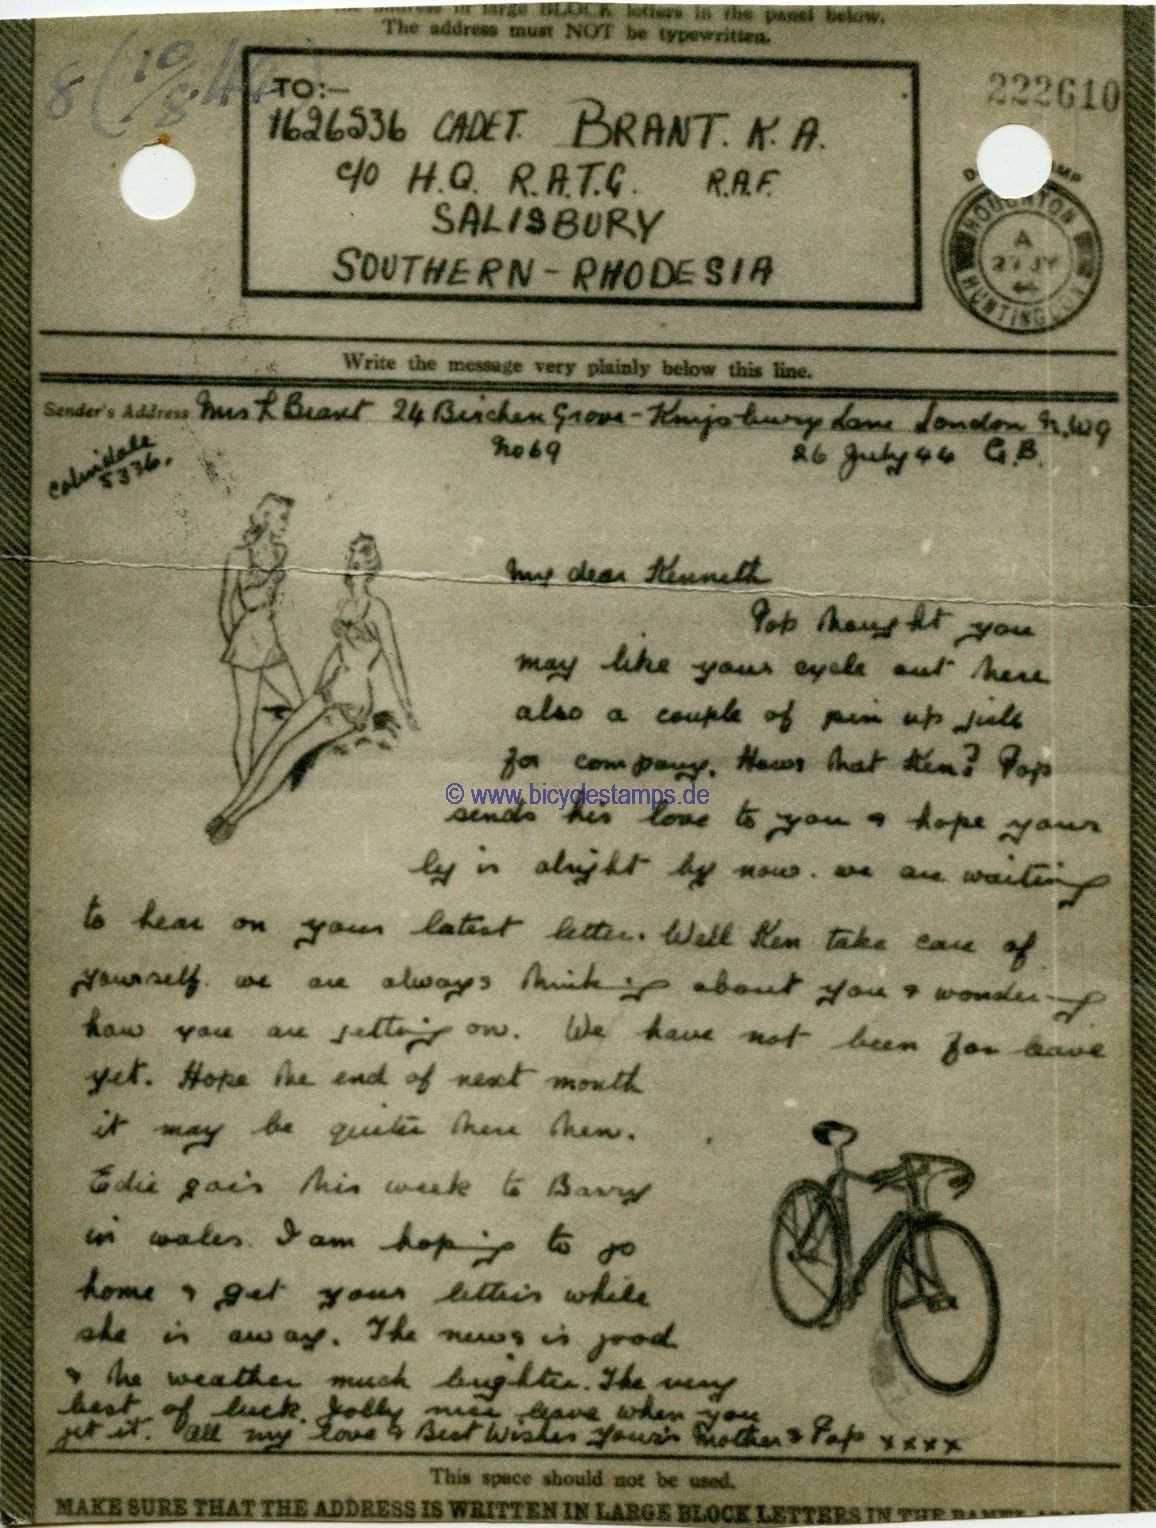 the address in large BLOCK letters in the panel below.
The address must NOT be typewritten.
8 (10/8.44)
TO:-
222610
1626536 CADET. BRANT. K. A.
c/o H.Q. R.A.T.G. R.A.F.
SALISBURY
SOUTHERN - RHODESIA
HOUGHTON
A
JY
44
HUNTINGDON
Write the message very plainly below this line.
Sender's Address Mrs L Brant 24 Birchen Grove - Kingsbury Lane London N.W 9
No 69 26 July 44 G.B.
Colindale
5336.
My dear Kenneth
Pop thought you
may like your cycle out there
also a couple of pin up girls
for company. Hows that Ken? Pop
© www.bicyclestamps.de
sends his love to you & hope your
leg is alright by now. we are waiting
to hear on your latest letter. Well Ken take care of
yourself. we are always thinking about you & wondering
how you are getting on. We have not been for leave
yet. Hope the end of next month
it may be quieter there then.
Edie goes this week to Barry
in wales. I am hoping to go
home & get your letters while
she is away. The news is good
& the weather much brighter. The very
best of luck. Jolly nice leave when you
get it. All my love & Best Wishes Yours Mother & Pop xxxx
This space should not be used.
MAKE SURE THAT THE ADDRESS IS WRITTEN IN LARGE BLOCK LETTERS IN THE PANEL